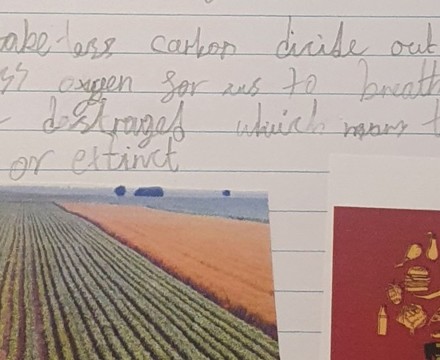 take less carbon dioide out
oxygen for us to breath
destroyed which means
or extinct